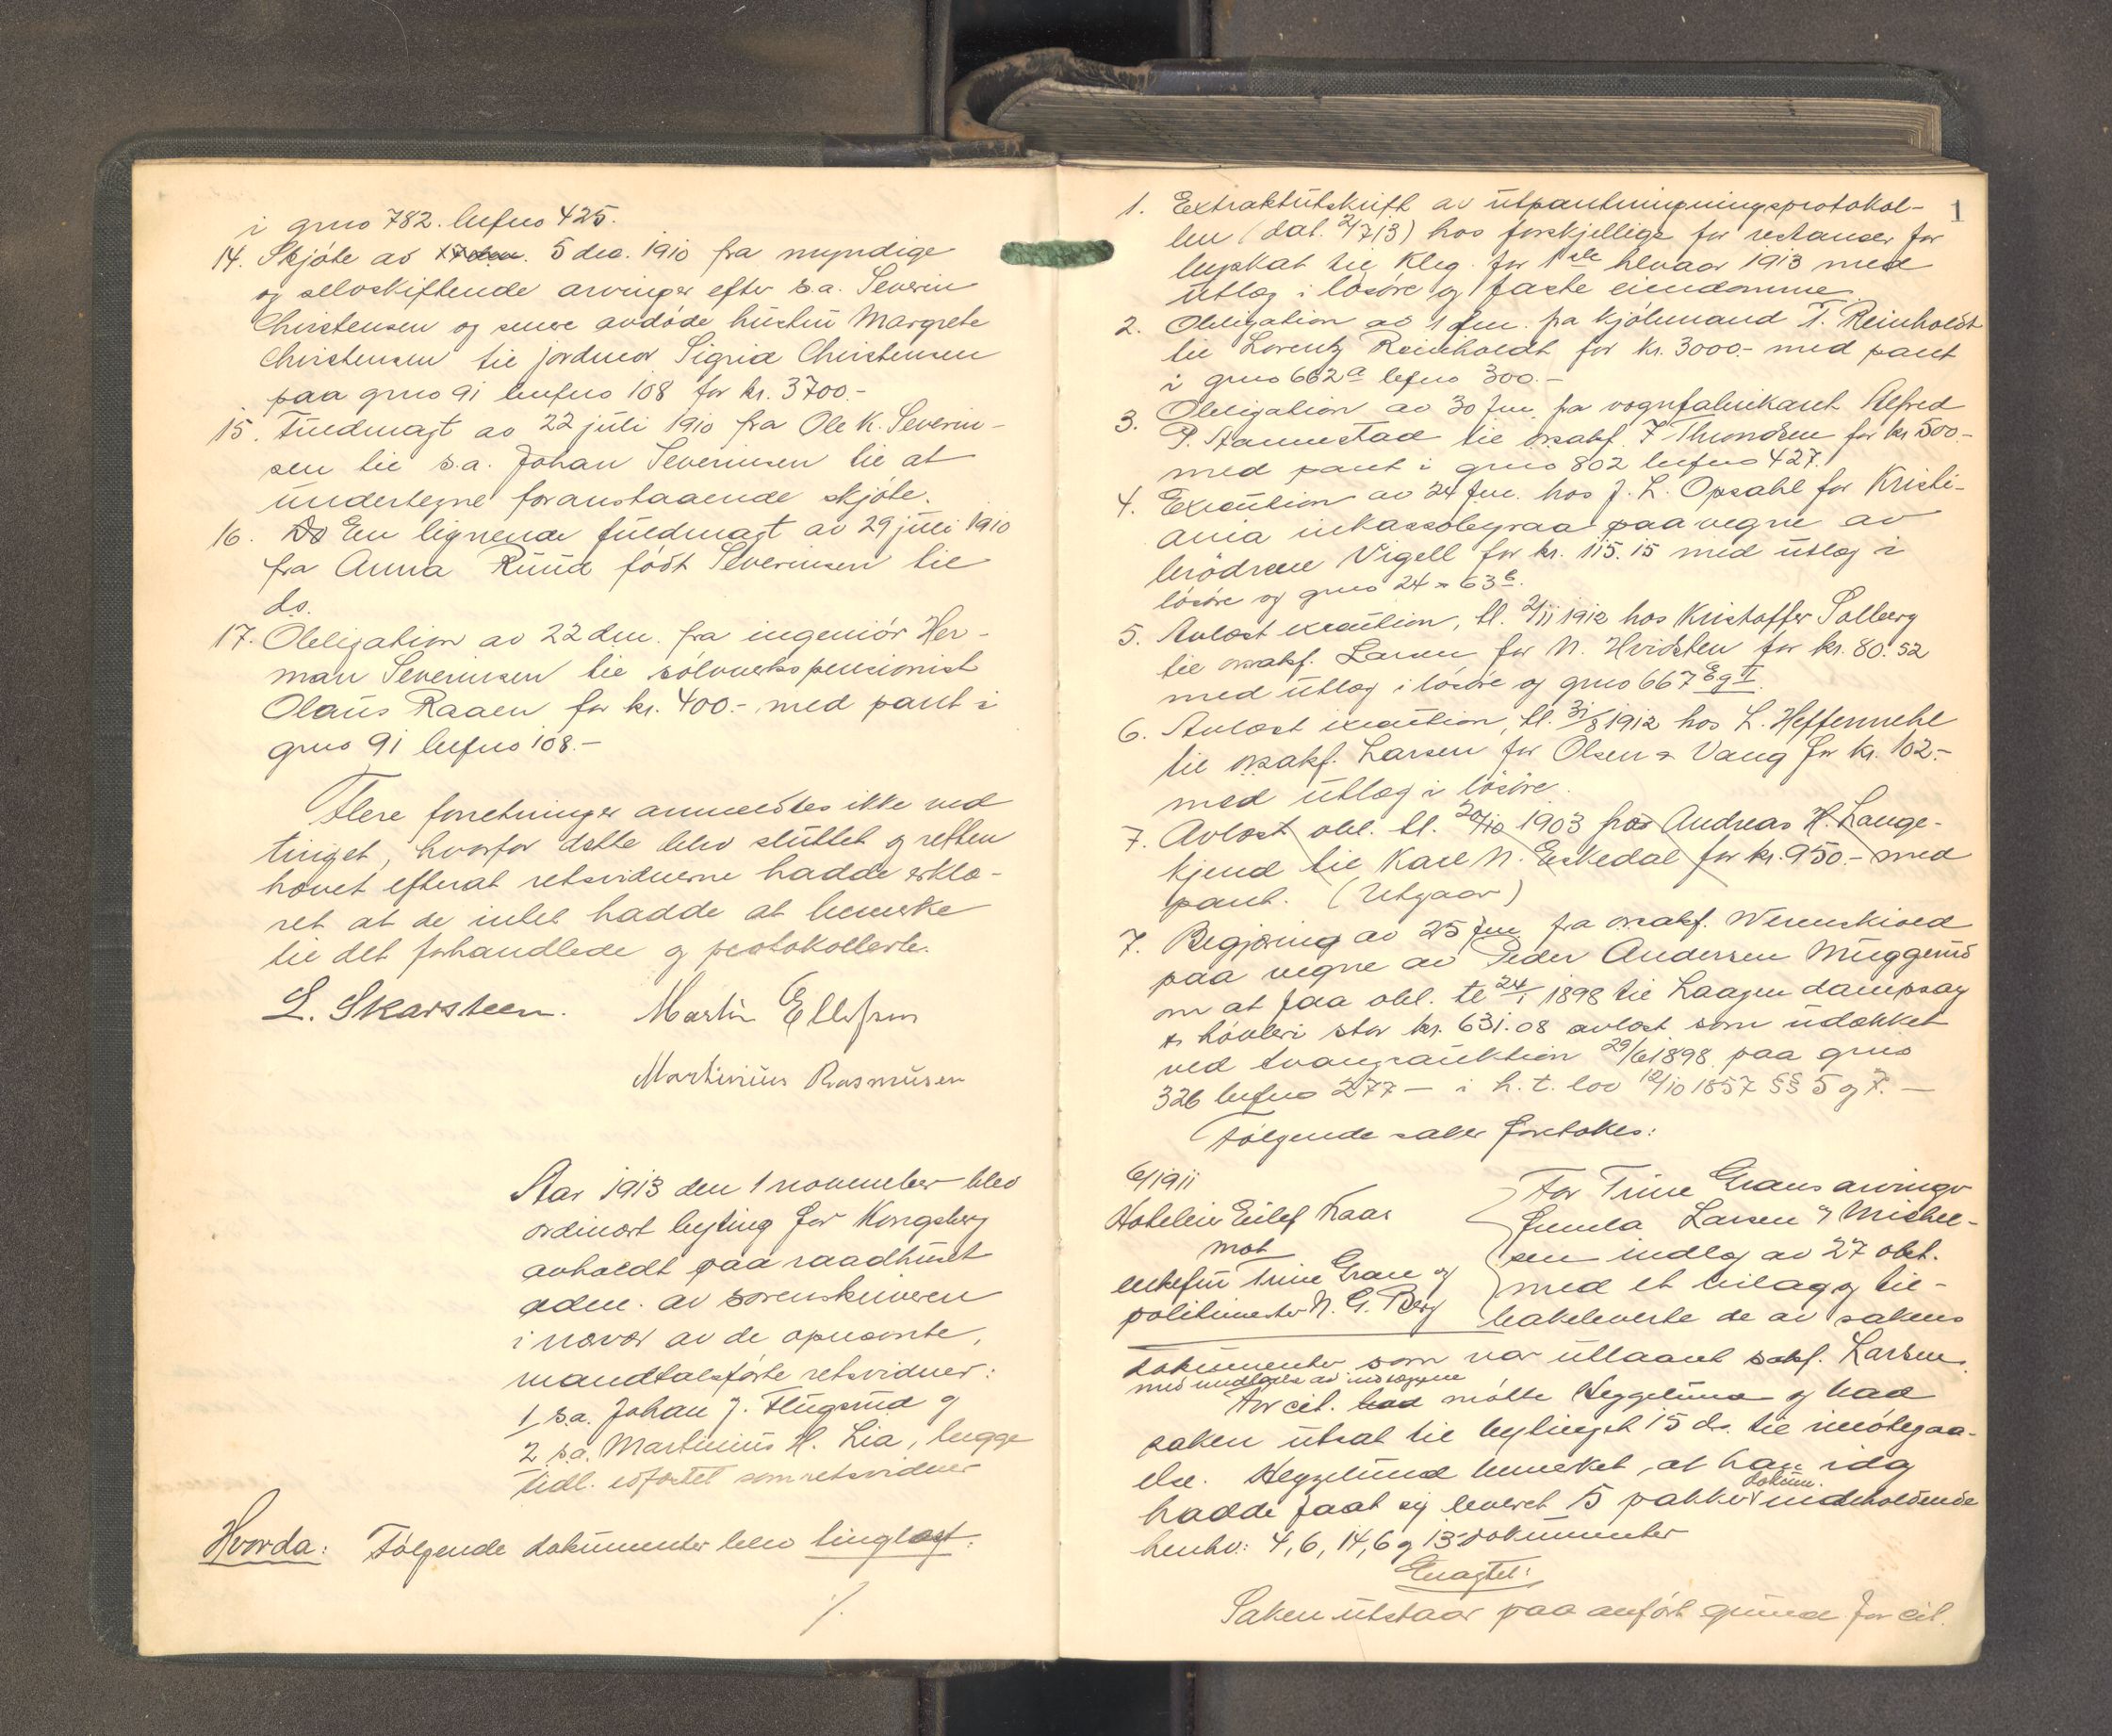 i grno 782. bufno 425.
14. Skjöte av 17 den. 5 dec. 1910 fra myndige
og selvskiftende arvinger efter s.a. Severin
Christensen og senere avdöde hustru Margrete
Christensen til jordmor Sigrid Christensen
paa grno 91 bufno 108 for kr. 3700.-
15. Fuldmagt av 22 juli 1910 fra Ole K. Severin-
sen til s.a. Johan Severinsen til at
undertegne foranstaaende skjöte.
16. Do En lignende fuldmagt av 29 juli 1910
fra Anna Ruud födt Severinsen til
do.
17. Obligation av 22 dm. fra ingeniör Her-
man Severinsen til sölvverkspensionist
Olaus Raaen for kr. 400.- med pant i
grno 91 bufno 108.-
Flere forretninger anmeldtes ikke ved
tinget, hvorfor dette blev sluttet og retten
hævet efterat retsvidnerne hadde erklæ-
ret at de intet hadde at bemerke
til det forhandlede og protokollerte.
L. Skarsteen. Martin Ellefsen
Martinius Rasmusen
Aar 1913 den 1 november blev
ordinært byting for Kongsberg
avholdt paa raadhuset
adm. av sorenskriveren
i nærvær av de opnævnte,
mandtalsförte retsvidner:
1 s.a. Johan J. Flugsrud og
2 s.a. Martinius H. Lia, begge
tidl. edfæstet som retsvidner
Hvorda: Følgende dokumenter blev tinglæst:
./.
1
1. Extraktutskrift av utpantningsprotokol-
len (dat. 2/7 13) hos forskjellige for restanser for
byskat til Kbg. for 1ste halvaar 1913 med
utlæg i lösöre og faste eiendomme.
2. Obligation av 1 fm. fra kjöbmand T. Reinholdt
til Lorentz Reinholdt for kr. 3000.- med pant
i grno 662a bufno 300.-
3. Obligation av 30 fm. fra vognfabrikant Alfred
P. Stannestad til orsakf. F. Throndsen for kr 500.-
med pant i grno 802 bufno 427.
4. Execution av 24 fm. hos J. L. Opsahl for Kristi-
ania inkassobyraa paa vegne av
brödrene Vigell for kr. 115.15 med utlæg i
lösöre og grno 24 & 63b.
5. Avlæst execution, tl. 2/11 1912 hos Kristoffer Solberg
til orsakf. Larsen for N. Hvidsten for kr. 80.52
med utlæg i lösöre og grno 667 E g I.
6. Avlæst execution, tl. 31/8 1912 hos L. Heffermehl
til orsakf. Larsen for Olsen & Vang for kr. 102.-
med utlæg i lösöre.
7. Avlæst obl. tl. 20/10 1903 fra Andreas H. Lange-
kjend til Karl N. Eskedal for kr. 950.- med
pant. (Utgaar)
7. Begjæring av 25 fm. fra orsakf. Werenskiold
paa vegne av Peder Andersen Muggerud
om at faa obl. tl 24/1 1898 til Laagen dampsag
& hövleri stor kr. 631.08 avlæst som udækket
ved tvangsauktion 29/6 1898 paa grno
326 bufno 277 — i h. t. lov 12/10 1857 §§ 5 og 7. —
Følgende saker foretokes:
6/1911
Hoteleier Eilef Kaas
mot
enkefru Trine Gran og
politimester N. G. Berg
For Trine Grans arvinger
fremla Larsen & Michel-
sen indlæg av 27 okt.
med et bilag og til-
bakeleverte de av sakens
dokumenter som var utlaant sakf. Larsen.
med undtagelse av indlæggene
For cit. bad mötte Heggelund og bad
saken utsat til bytinget 15 ds. til imötegaa-
else. Heggelund bemerket, at han idag
hadde faat sig leveret 5 pakker dokum. indeholdende
henhv: 4, 6, 14, 6 og 13 dokumenter
Eragtet:
Saken utstaar paa anfört grund for cit.